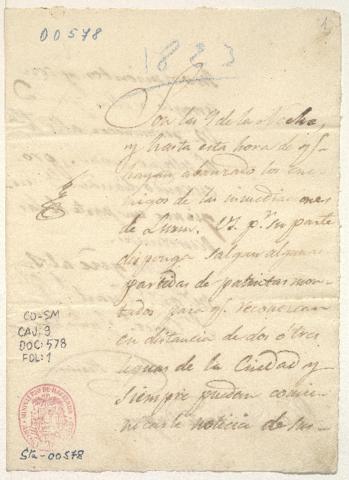 00578
1823
1
Son las 9 de la Noche,
y hasta esta hora de q.e
hayan abanzado los ene-
migos de las inmediaciones
de Lurin. VS. p.r su parte
disponga salgan algunas
partidas de patriotas mon-
tados para q.e reconoscan
en distancia de dos ó tres
leguas de la Ciudad y
siempre puedan comu-
nicarle noticia de sus-
CO-SM
CAJ: 9
DOC: 578
FOL: 1
MINISTERIO DE HACIENDA
Sta-00578